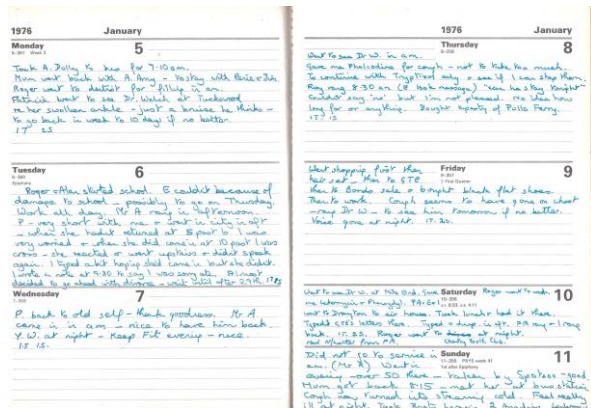 1976 January
Monday 5
Took A. Dolly to bus for 7.10 am.
Mum went back with A. Amy - to stay with
Roger went to dentist for filling in am.
Patricia went to see Dr. Welch at Tuckswood
re her swollen ankle - just a bruise he thinks -
to go back in week to 10 days if no better.
17 25
Tuesday 6
Epiphany
Roger + Alan started school. E couldn't because of
damage to school - possibly to go on Thursday.
Work all day. Mr A rang in afternoon.
P - very short with me + went in city in aft
- when she hadn't returned at 5 past to I was
very worried + when she did come in at 10 past I was
cross - she reacted + went upstairs + didn't speak
again. I typed a bit hoping she'd come in but she didn't.
I wrote a note at 9.30 to say I was sorry etc. Almost
decided to go ahead with divorce - wait until after 29th
Wednesday 7
P. back to old self - thank goodness. Mr A
came in in am - nice to have him back.
Y.W. at night - Keep Fit evening - nice.
15 15.
1976 January
Thursday 8
Went to see Dr W. in am.
Gave me Pholcodine for cough - not to take too much.
To continue with Tryptizol only + see if I can stop them.
Roy rang 8.30 am (E took message) "can he stay tonight"
Couldn't say 'no' but I'm not pleased. No idea how
long for or anything. Bought of Pulls Ferry.
Friday 9
Went shopping first then
hair set - then to GTE
then to Bonds sale + bought black flat shoes.
Then to work. Cough seems to have gone on chest
- rang Dr W - to see him tomorrow if no better.
Voice gone at night. 17.20.
Saturday 10
Went to see Dr. W. at Mile End. Gave
me
went to Drayton to house. Took lunch + had it there.
Typed letters there. Typed + in aft. PA rang + I rang
back. 17.25. Roger went to at night.
Sunday 11
1st after Epiphany
Did not go to service in
am. (Mr A) Went in
evening - over 50 there - taken by - good
Mum got back 8.15 - met her at bus station
Cough has turned into streaming cold. Feel really
ill at night. Took